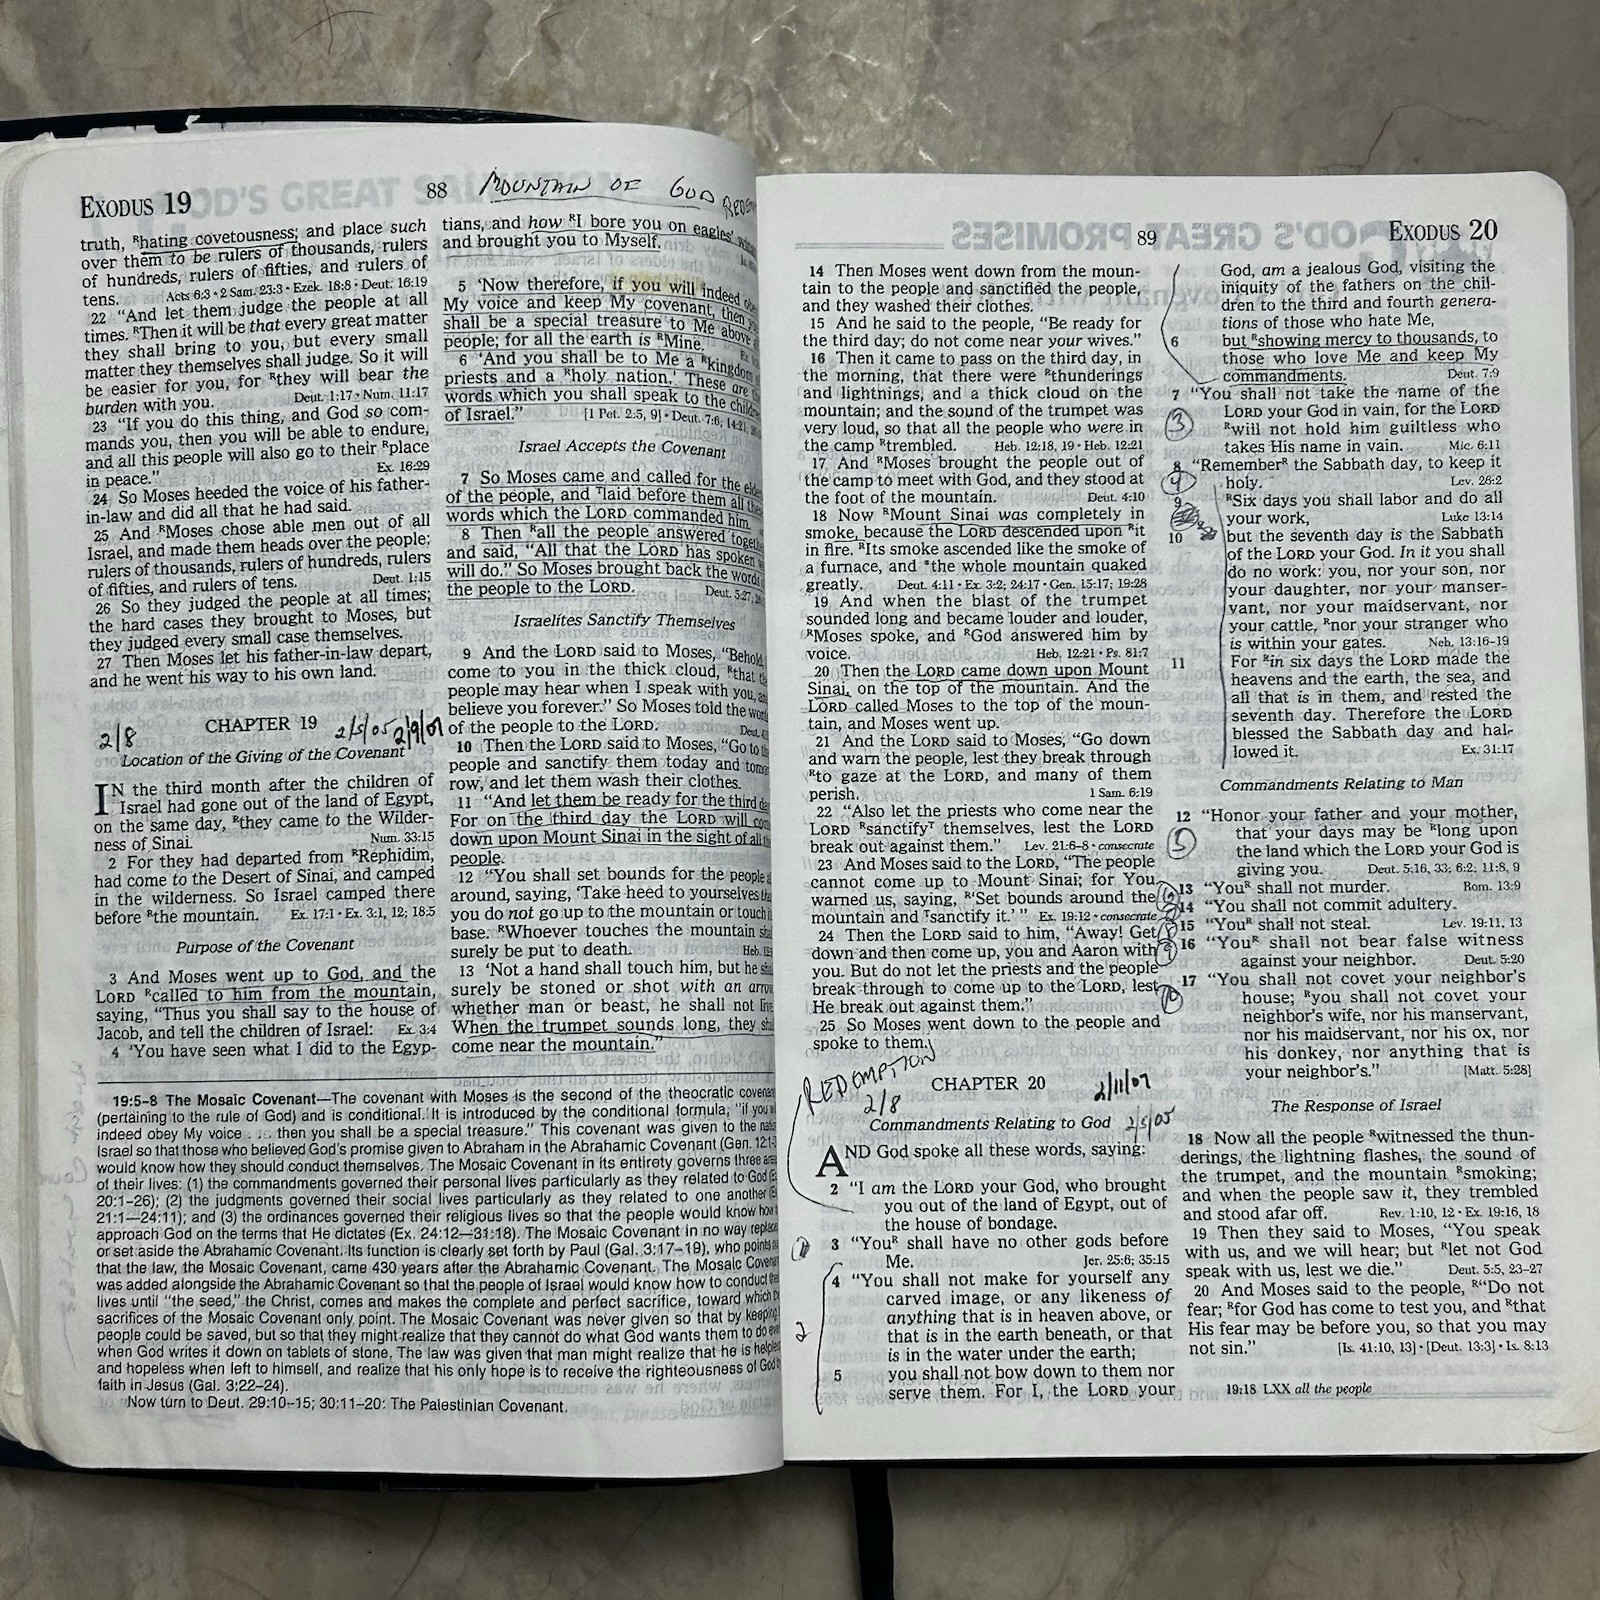 EXODUS 19
88
MOUNTAIN OF GOD
truth, ᴿhating covetousness; and place such
over them to be rulers of thousands, rulers
of hundreds, rulers of fifties, and rulers of
tens. Acts 6:3 • 2 Sam. 23:3 • Ezek. 18:8 • Deut. 16:19
22 "And let them judge the people at all
times. ᴿThen it will be that every great matter
they shall bring to you, but every small
matter they themselves shall judge. So it will
be easier for you, for ᴿthey will bear the
burden with you. Deut. 1:17 • Num. 11:17
23 "If you do this thing, and God so com-
mands you, then you will be able to endure,
and all this people will also go to their ᴿplace
in peace." Ex. 16:29
24 So Moses heeded the voice of his father-
in-law and did all that he had said.
25 And ᴿMoses chose able men out of all
Israel, and made them heads over the people;
rulers of thousands, rulers of hundreds, rulers
of fifties, and rulers of tens. Deut. 1:15
26 So they judged the people at all times;
the hard cases they brought to Moses, but
they judged every small case themselves.
27 Then Moses let his father-in-law depart,
and he went his way to his own land.
2/8 CHAPTER 19 2/5/05 2/9/07
Location of the Giving of the Covenant
IN the third month after the children of
Israel had gone out of the land of Egypt,
on the same day, ᴿthey came to the Wilder-
ness of Sinai. Num. 33:15
2 For they had departed from ᴿRephidim,
had come to the Desert of Sinai, and camped
in the wilderness. So Israel camped there
before ᴿthe mountain. Ex. 17:1 • Ex. 3:1, 12; 18:5
Purpose of the Covenant
3 And Moses went up to God, and the
LORD ᴿcalled to him from the mountain,
saying, "Thus you shall say to the house of
Jacob, and tell the children of Israel: Ex. 3:4
4 'You have seen what I did to the Egyp-
tians, and how ᴿI bore you on eagles'
and brought you to Myself.
5 'Now therefore, if you will indeed
My voice and keep My covenant, then
shall be a special treasure to Me above
people; for all the earth is ᴿMine.
6 'And you shall be to Me a ᴿkingdom
priests and a ᴿholy nation.' These are
words which you shall speak to the
of Israel." [1 Pet. 2:5, 9] • Deut. 7:6; 14:21
Israel Accepts the Covenant
7 So Moses came and called for the
of the people, and ᵀlaid before them all
words which the LORD commanded him.
8 Then ᴿall the people answered
and said, "All that the LORD has spoken
will do." So Moses brought back the words
the people to the LORD. Deut. 5:27
Israelites Sanctify Themselves
9 And the LORD said to Moses, "Behold,
come to you in the thick cloud, ᴿthat
people may hear when I speak with you,
believe you forever." So Moses told the
of the people to the LORD.
10 Then the LORD said to Moses, "Go to
people and sanctify them today and
row, and let them wash their clothes.
11 "And let them be ready for the third
For on the third day the LORD will
down upon Mount Sinai in the sight of all
people.
12 "You shall set bounds for the people
around, saying, 'Take heed to yourselves
you do not go up to the mountain or touch
base. ᴿWhoever touches the mountain
surely be put to death.
13 'Not a hand shall touch him, but he
surely be stoned or shot with an
whether man or beast, he shall not
When the trumpet sounds long, they
come near the mountain."
19:5–8 The Mosaic Covenant—The covenant with Moses is the second of the theocratic
(pertaining to the rule of God) and is conditional. It is introduced by the conditional formula, "if you
indeed obey My voice . . . then you shall be a special treasure." This covenant was given to the
Israel so that those who believed God's promise given to Abraham in the Abrahamic Covenant (Gen. 12:1
would know how they should conduct themselves. The Mosaic Covenant in its entirety governs three
of their lives: (1) the commandments governed their personal lives particularly as they related to God
20:1–26); (2) the judgments governed their social lives particularly as they related to one another
21:1—24:11); and (3) the ordinances governed their religious lives so that the people would know
approach God on the terms that He dictates (Ex. 24:12—31:18). The Mosaic Covenant in no way
or set aside the Abrahamic Covenant. Its function is clearly set forth by Paul (Gal. 3:17–19), who points
that the law, the Mosaic Covenant, came 430 years after the Abrahamic Covenant. The Mosaic
was added alongside the Abrahamic Covenant so that the people of Israel would know how to conduct
lives until "the seed," the Christ, comes and makes the complete and perfect sacrifice, toward which
sacrifices of the Mosaic Covenant only point. The Mosaic Covenant was never given so that by keeping
people could be saved, but so that they might realize that they cannot do what God wants them to do
when God writes it down on tablets of stone. The law was given that man might realize that he is
and hopeless when left to himself, and realize that his only hope is to receive the righteousness of God
faith in Jesus (Gal. 3:22–24).
Now turn to Deut. 29:10–15; 30:11–20: The Palestinian Covenant.
89
EXODUS 20
14 Then Moses went down from the moun-
tain to the people and sanctified the people,
and they washed their clothes.
15 And he said to the people, "Be ready for
the third day; do not come near your wives."
16 Then it came to pass on the third day, in
the morning, that there were ᴿthunderings
and lightnings, and a thick cloud on the
mountain; and the sound of the trumpet was
very loud, so that all the people who were in
the camp ᴿtrembled. Heb. 12:18, 19 • Heb. 12:21
17 And ᴿMoses brought the people out of
the camp to meet with God, and they stood at
the foot of the mountain. Deut. 4:10
18 Now ᴿMount Sinai was completely in
smoke, because the LORD descended upon ᴿit
in fire. ᴿIts smoke ascended like the smoke of
a furnace, and *the whole mountain quaked
greatly. Deut. 4:11 • Ex. 3:2; 24:17 • Gen. 15:17; 19:28
19 And when the blast of the trumpet
sounded long and became louder and louder,
ᴿMoses spoke, and ᴿGod answered him by
voice. Heb. 12:21 • Ps. 81:7
20 Then the LORD came down upon Mount
Sinai, on the top of the mountain. And the
LORD called Moses to the top of the moun-
tain, and Moses went up.
21 And the LORD said to Moses, "Go down
and warn the people, lest they break through
ᴿto gaze at the LORD, and many of them
perish. 1 Sam. 6:19
22 "Also let the priests who come near the
LORD ᴿsanctifyᵀ themselves, lest the LORD
break out against them." Lev. 21:6–8 • consecrate
23 And Moses said to the LORD, "The people
cannot come up to Mount Sinai; for You
warned us, saying, ᴿ'Set bounds around the
mountain and ᵀsanctify it.' " Ex. 19:12 • consecrate
24 Then the LORD said to him, "Away! Get
down and then come up, you and Aaron with
you. But do not let the priests and the people
break through to come up to the LORD, lest
He break out against them."
25 So Moses went down to the people and
spoke to them.
REDEMPTION
2/8 CHAPTER 20 2/11/07
Commandments Relating to God 2/5/05
AND God spoke all these words, saying:
2 "I am the LORD your God, who brought
you out of the land of Egypt, out of
the house of bondage.
1 3 "Youᴿ shall have no other gods before
Me. Jer. 25:6; 35:15
4 "You shall not make for yourself any
carved image, or any likeness of
anything that is in heaven above, or
2 that is in the earth beneath, or that
is in the water under the earth;
5 you shall not bow down to them nor
serve them. For I, the LORD your
God, am a jealous God, visiting the
iniquity of the fathers on the chil-
dren to the third and fourth genera-
tions of those who hate Me,
6 but ᴿshowing mercy to thousands, to
those who love Me and keep My
commandments. Deut. 7:9
7 "You shall not take the name of the
3 LORD your God in vain, for the LORD
ᴿwill not hold him guiltless who
takes His name in vain. Mic. 6:11
8 "Rememberᴿ the Sabbath day, to keep it
4 holy. Lev. 26:2
9 ᴿSix days you shall labor and do all
your work, Luke 13:14
10 but the seventh day is the Sabbath
of the LORD your God. In it you shall
do no work: you, nor your son, nor
your daughter, nor your manser-
vant, nor your maidservant, nor
your cattle, ᴿnor your stranger who
is within your gates. Neh. 13:16–19
11 For ᴿin six days the LORD made the
heavens and the earth, the sea, and
all that is in them, and rested the
seventh day. Therefore the LORD
blessed the Sabbath day and hal-
lowed it. Ex. 31:17
Commandments Relating to Man
12 "Honor your father and your mother,
5 that your days may be ᴿlong upon
the land which the LORD your God is
giving you. Deut. 5:16, 33; 6:2; 11:8, 9
6 13 "Youᴿ shall not murder. Rom. 13:9
14 "You shall not commit adultery.
8 15 "Youᴿ shall not steal. Lev. 19:11, 13
9 16 "Youᴿ shall not bear false witness
against your neighbor. Deut. 5:20
10 17 "You shall not covet your neighbor's
house; ᴿyou shall not covet your
neighbor's wife, nor his manservant,
nor his maidservant, nor his ox, nor
his donkey, nor anything that is
your neighbor's." [Matt. 5:28]
The Response of Israel
18 Now all the people ᴿwitnessed the thun-
derings, the lightning flashes, the sound of
the trumpet, and the mountain ᴿsmoking;
and when the people saw it, they trembled
and stood afar off. Rev. 1:10, 12 • Ex. 19:16, 18
19 Then they said to Moses, "You speak
with us, and we will hear; but ᴿlet not God
speak with us, lest we die." Deut. 5:5, 23–27
20 And Moses said to the people, ᴿ"Do not
fear; ᴿfor God has come to test you, and ᴿthat
His fear may be before you, so that you may
not sin." [Is. 41:10, 13] • [Deut. 13:3] • Is. 8:13
19:18 LXX all the people